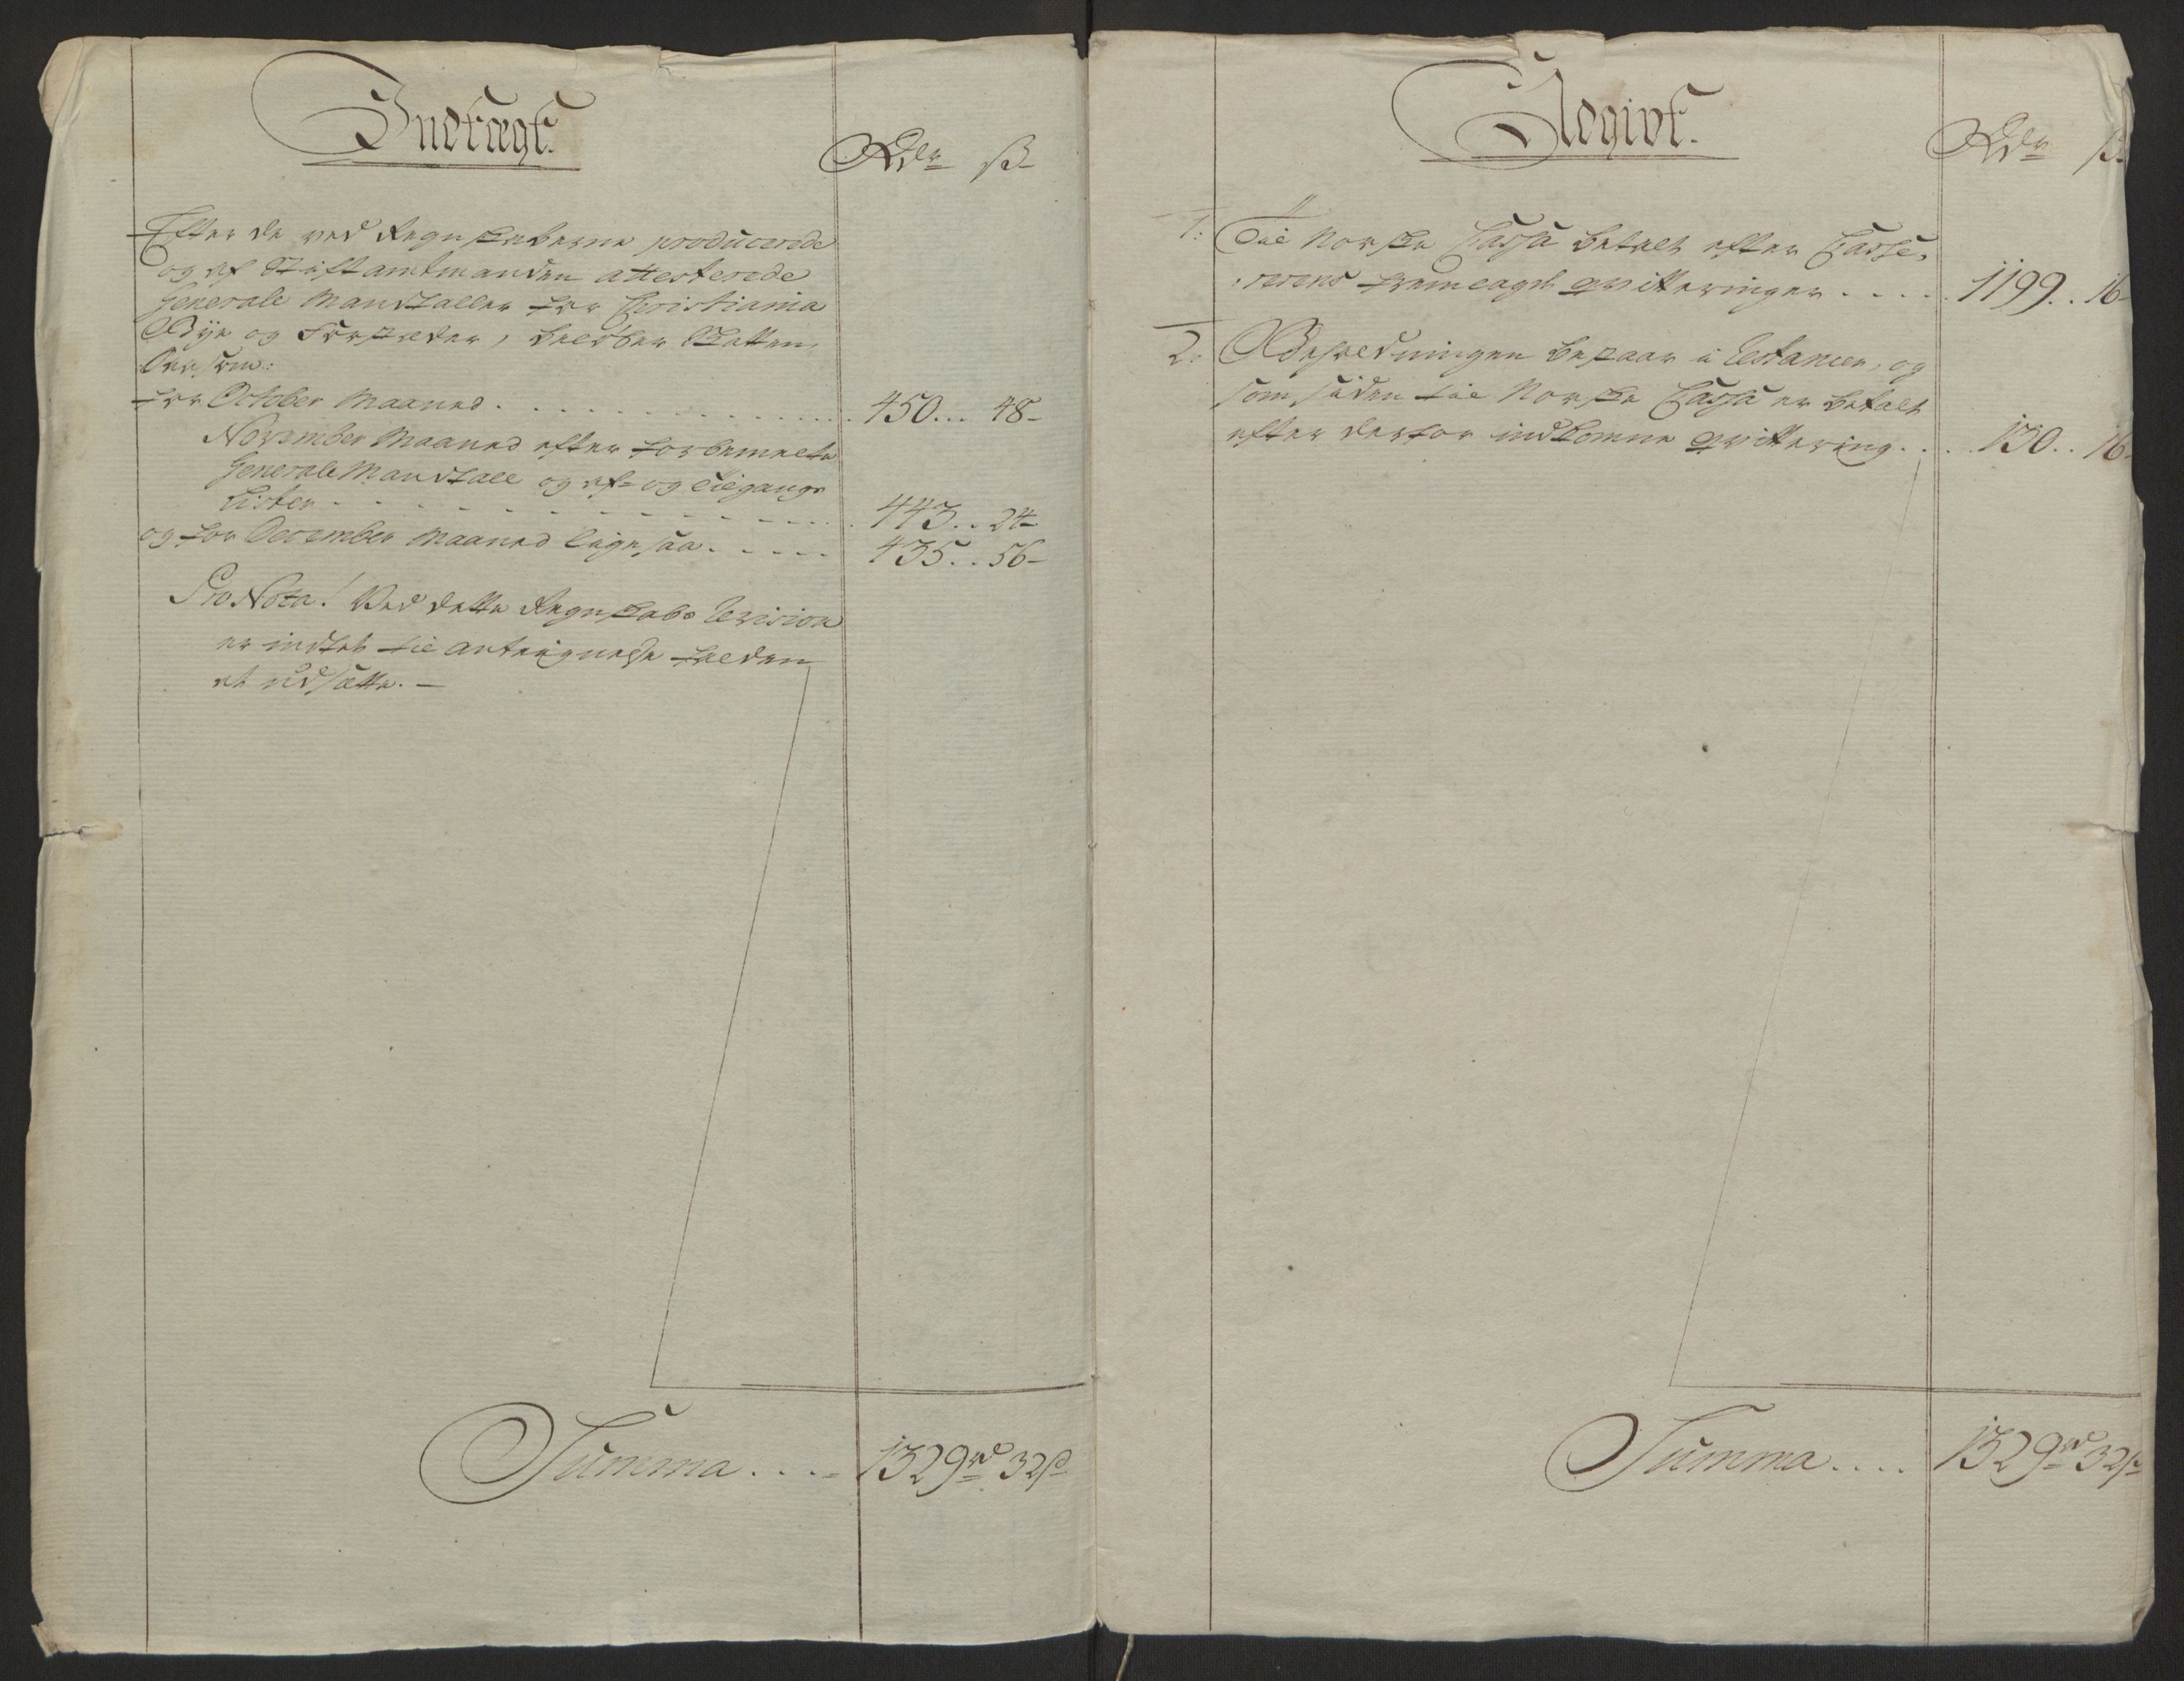 Indtægt.
Rdr ß
Efter de ved Regnskaberne producerede
og af Stiftamtmanden attesterede
Generale Mandtaller for Christiania
Bÿe og Forstæder, beløber Skatten,
for October Maaned . . . 450 . . . 48
November Maaned efter forbemelte
Generale Mandtall og af- og tilgangs
Lister . . . 443 . . 24
og for December Maaned ligesaa . . . 435 . . 56
Pro Nota! Ved dette Regnskabs Revision
er intet til Antegnelse falden
at udsætte. —
Summa . . . . 1329 rd 32 ß
Udgivt.
Rdr ß
1: Til Norske Cassa betalt efter Casse-
rerens fremlagde qvitteringer . . . . . 1199 . . 16
2: Beholdningen bestaar i Restancer, og
som siden til Norske Cassa er betalt
efter derfor indkomne qvittering . . . 130 . . 16
Summa . . . . 1329 rd 32 ß